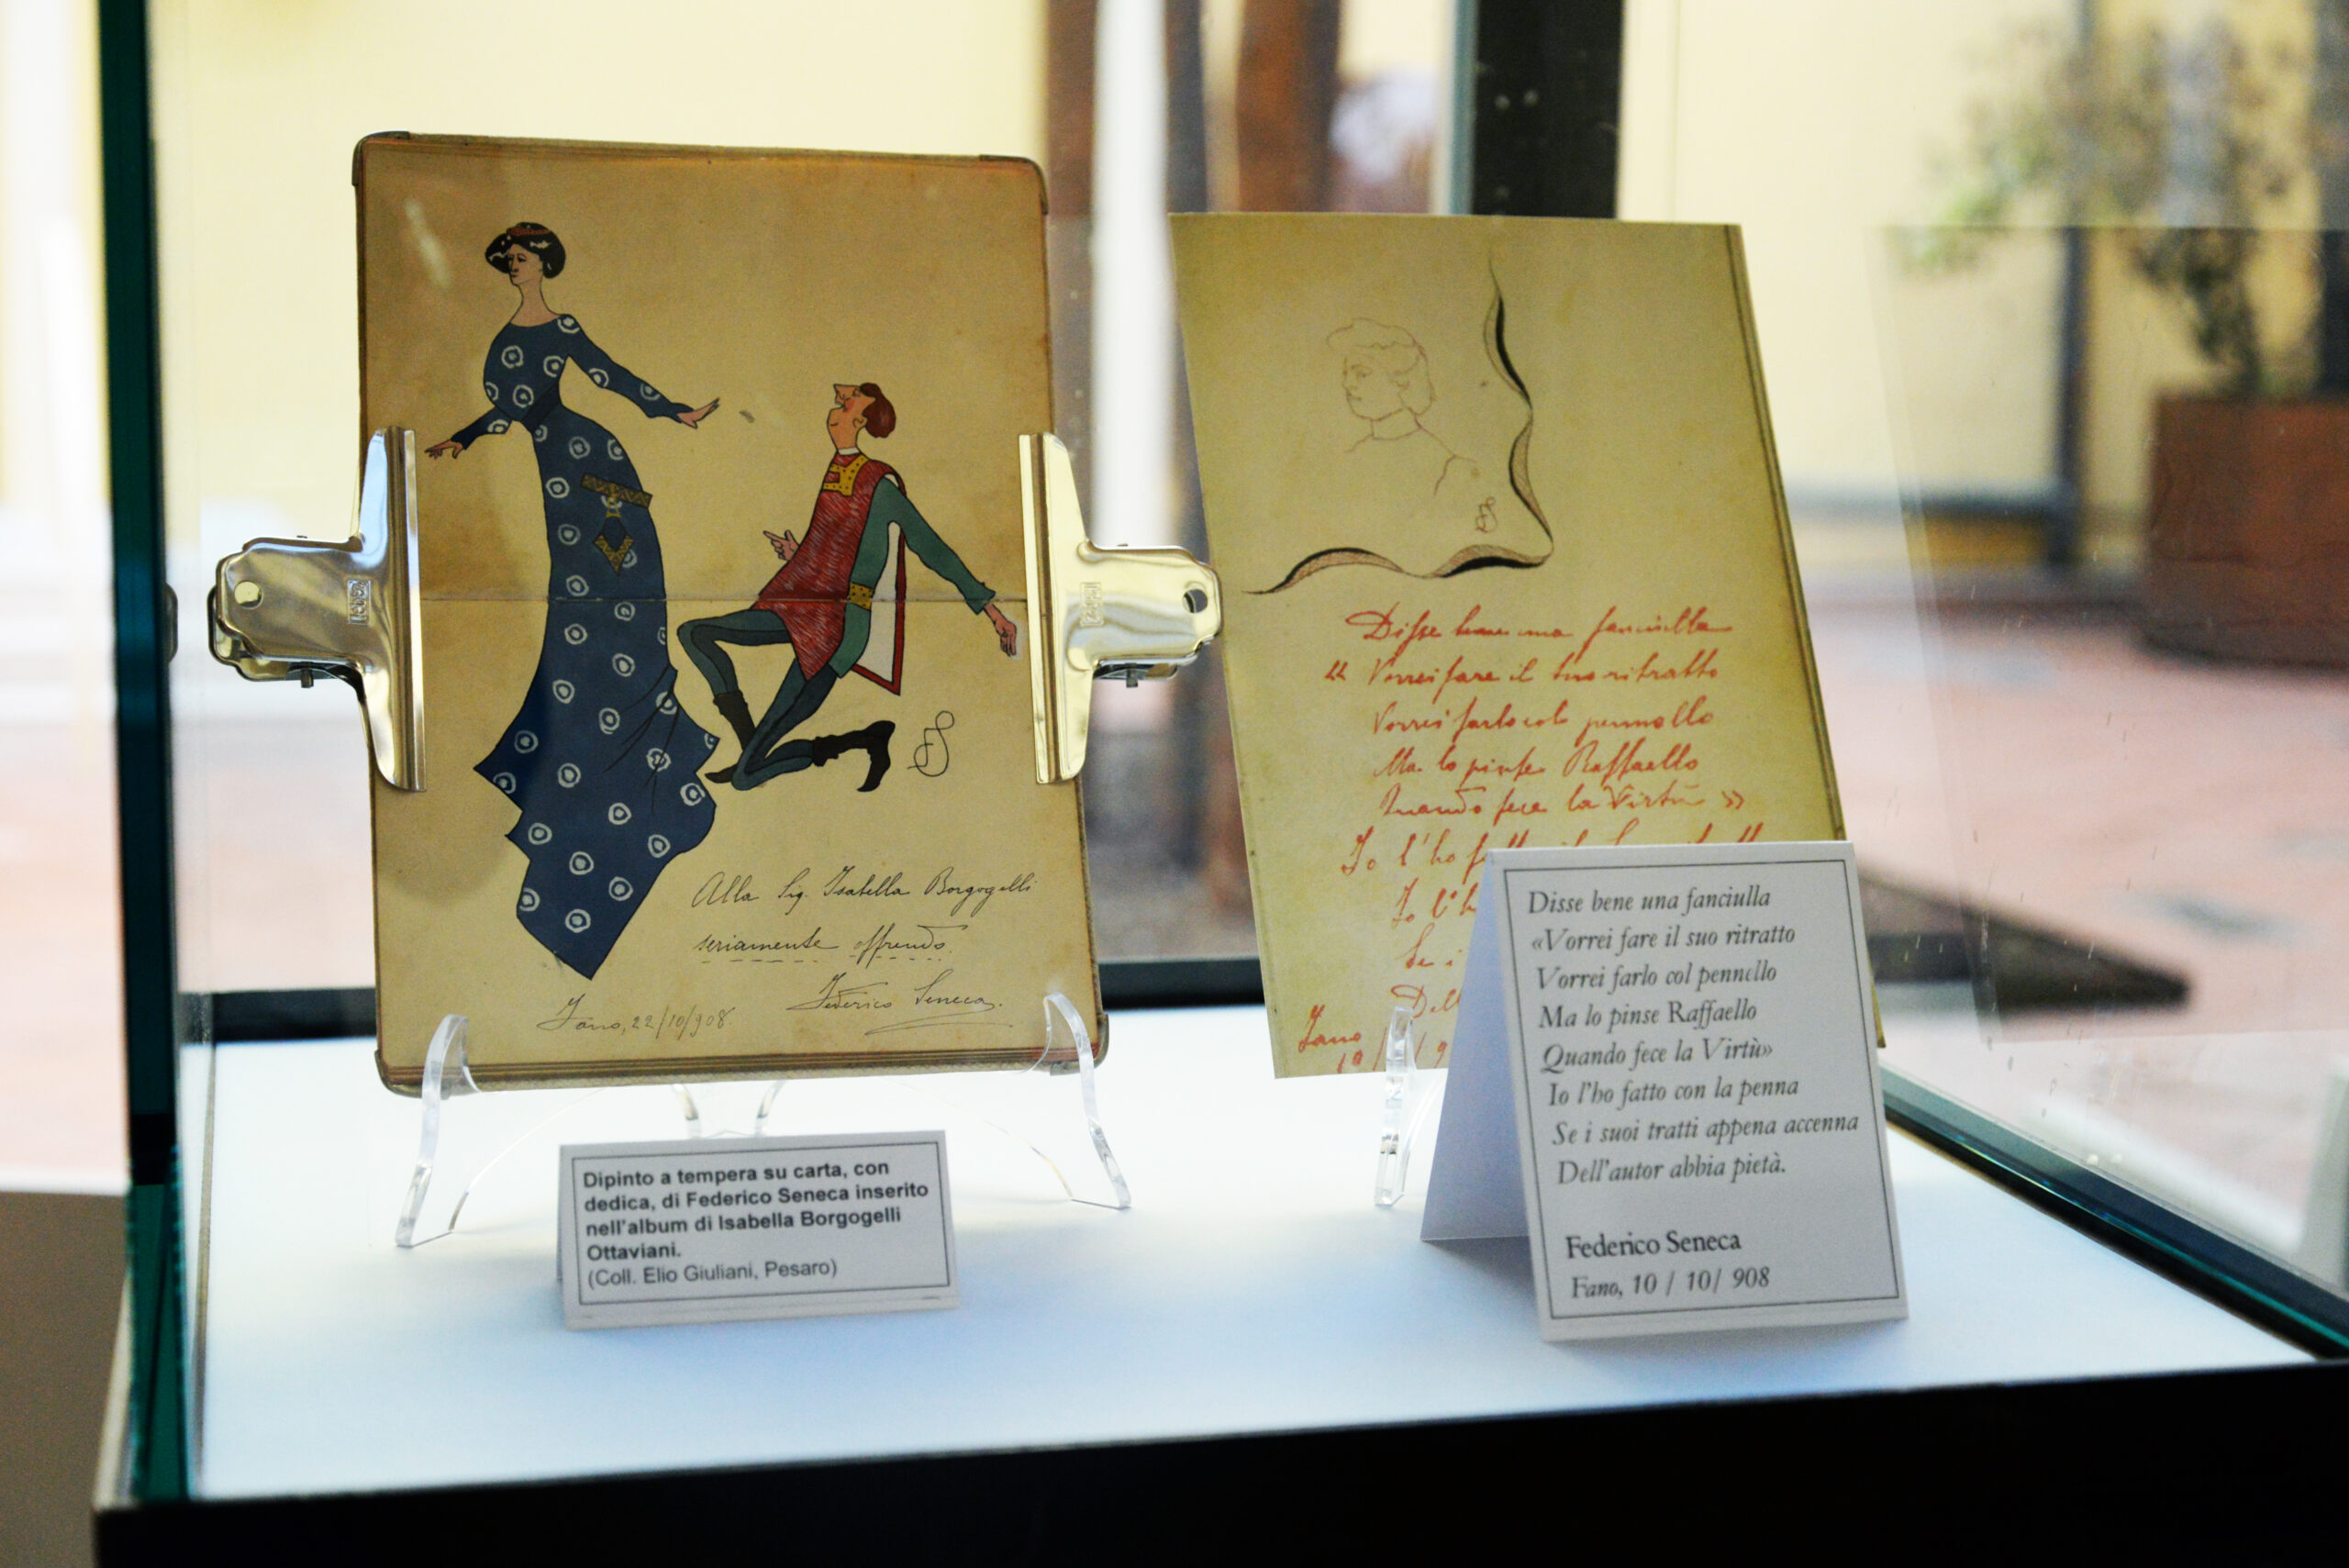 Alla Sig. Isabella Borgogelli
seriamente offrendo.
Federico Seneca.
Fano, 22/10/908.
Dipinto a tempera su carta, con
dedica, di Federico Seneca inserito
nell'album di Isabella Borgogelli
Ottaviani.
(Coll. Elio Giuliani, Pesaro)
Disse bene una fanciulla
« Vorrei fare il suo ritratto
Vorrei farlo col pennello
Ma lo pinse Raffaello
Quando fece la Virtù »
Io l'ho
Io l'h
Se i
Dell
Fano
10/
Disse bene una fanciulla
«Vorrei fare il suo ritratto
Vorrei farlo col pennello
Ma lo pinse Raffaello
Quando fece la Virtù»
Io l'ho fatto con la penna
Se i suoi tratti appena accenna
Dell'autor abbia pietà.
Federico Seneca
Fano, 10 / 10/ 908